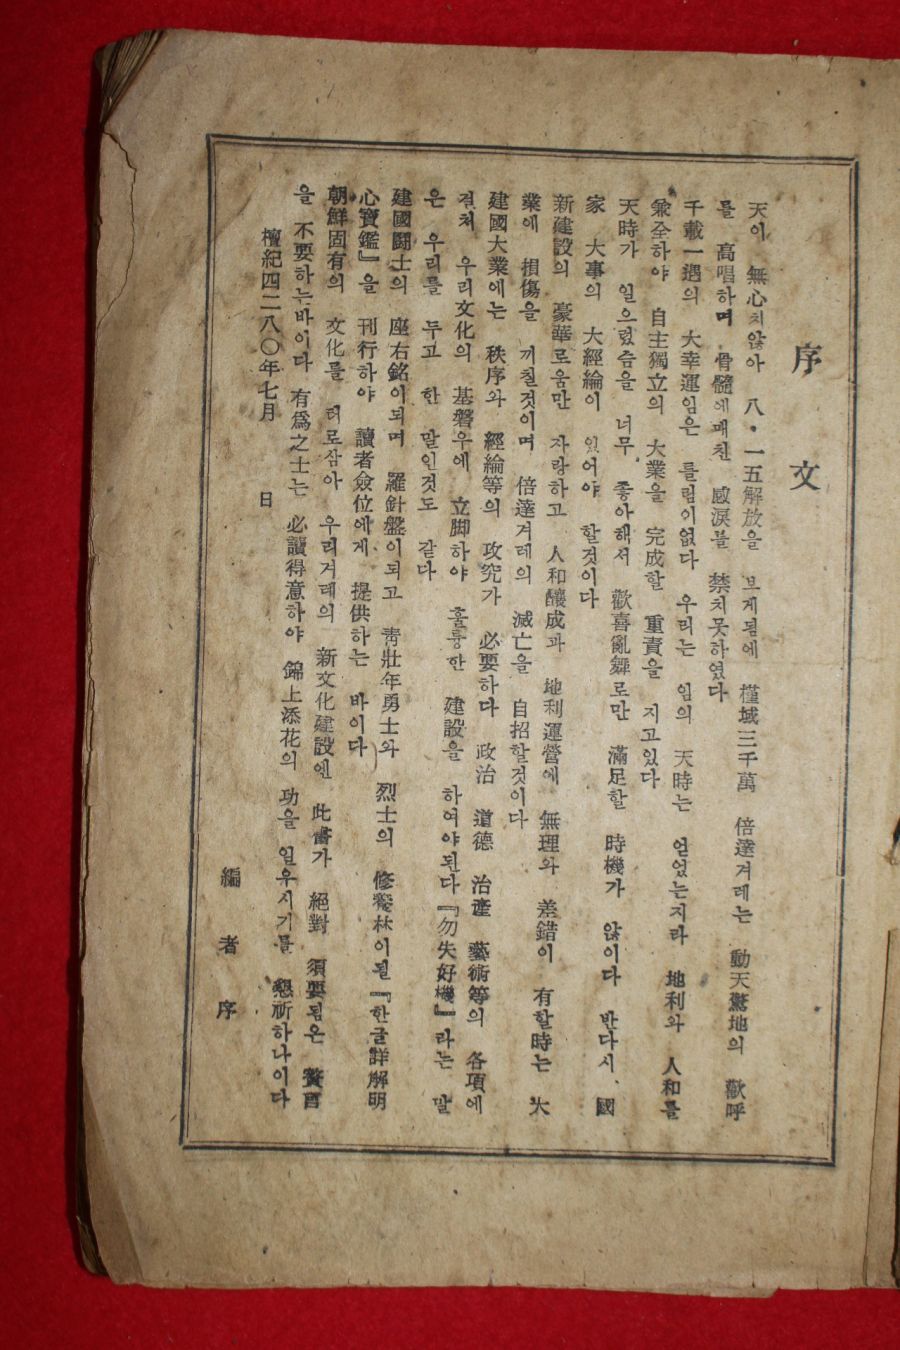 序文
天이 無心치않아 八·一五解放을 보게됨에 槿域三千萬 倍達겨레는 動天驚地의 歡呼
를 高唱하며 骨髓에매친 感淚를 禁치못하였다
千載一遇의 大幸運임은 틀림이없다 우리는 임의 天時는 얻었는지라 地利와 人和를
兼全하야 自主獨立의 大業을 完成할 重責을 지고있다
天時가 일으렀슴을 너무 좋아해서 歡喜亂舞로만 滿足할 時機가 않이다 반다시 國
家 大事의 大經綸이 있어야 할것이다
新建設의 豪華로움만 자랑하고 人和釀成과 地利運營에 無理와 差錯이 有할時는 大
業에 損傷을 끼칠것이며 倍達겨레의 滅亡을 自招할것이다
建國大業에는 秩序와 經綸等의 攻究가 必要하다 政治 道德 治産 藝術等의 各項에
걸처 우리文化의 基磐우에 立脚하야 훌륭한 建設을 하여야된다『勿失好機』라는 말
은 우리를 두고 한 말인것도 같다
建國鬪士의 座右銘이되며 羅針盤이되고 靑壯年勇士와 烈士의 修養林이될『한글詳解明
心寶鑑』을 刊行하야 讀者僉位에게 提供하는 바이다
朝鮮固有의 文化를 터로삼아 우리겨레의 新文化建設엔 此書가 絕對 須要됨은 贅言
을 不要하는바이다 有爲之士는 必讀得意하야 錦上添花의 功을 일우시기를 懇祈하나이다
檀紀四二八〇年七月 日
編者序